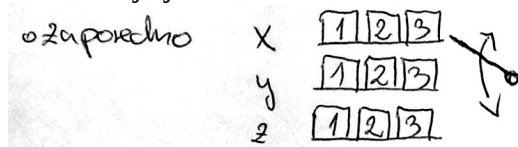 zaporedno x 1 2 3
y 1 2 3
z 1 2 3